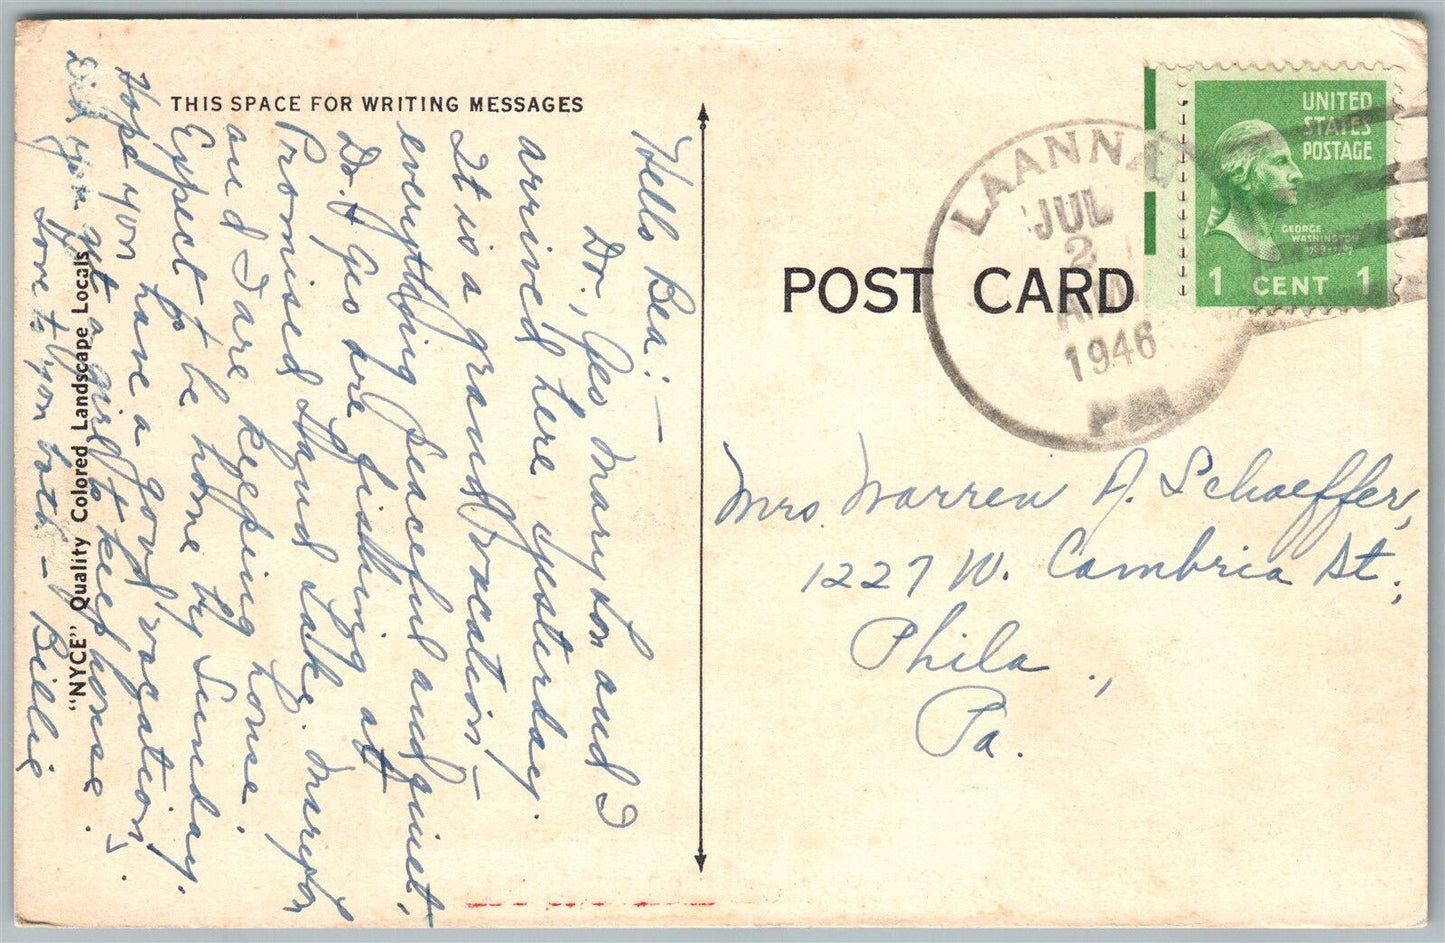 THIS SPACE FOR WRITING MESSAGES
Hello Bea:—
Dr., Geo Maryton and I
arrived here yesterday.
It is a grand vacation—
everything peaceful and quiet,
Dr. & Geo are fishing at
Promised Land Lake. Maryton
and I are keeping house.
Expect to be home by Sunday.
Hope you have a good vacation.
Did you get a girl to keep house.
Love to you both — Billie
"NYCE" Quality Colored Landscape Locals
POST CARD
LAANNA
JUL
2
1946
PM
UNITED
STATES
POSTAGE
GEORGE
WASHINGTON
1 CENT 1
Mrs. Warren A. Schaeffer,
1227 W. Cambria St.,
Phila.,
Pa.